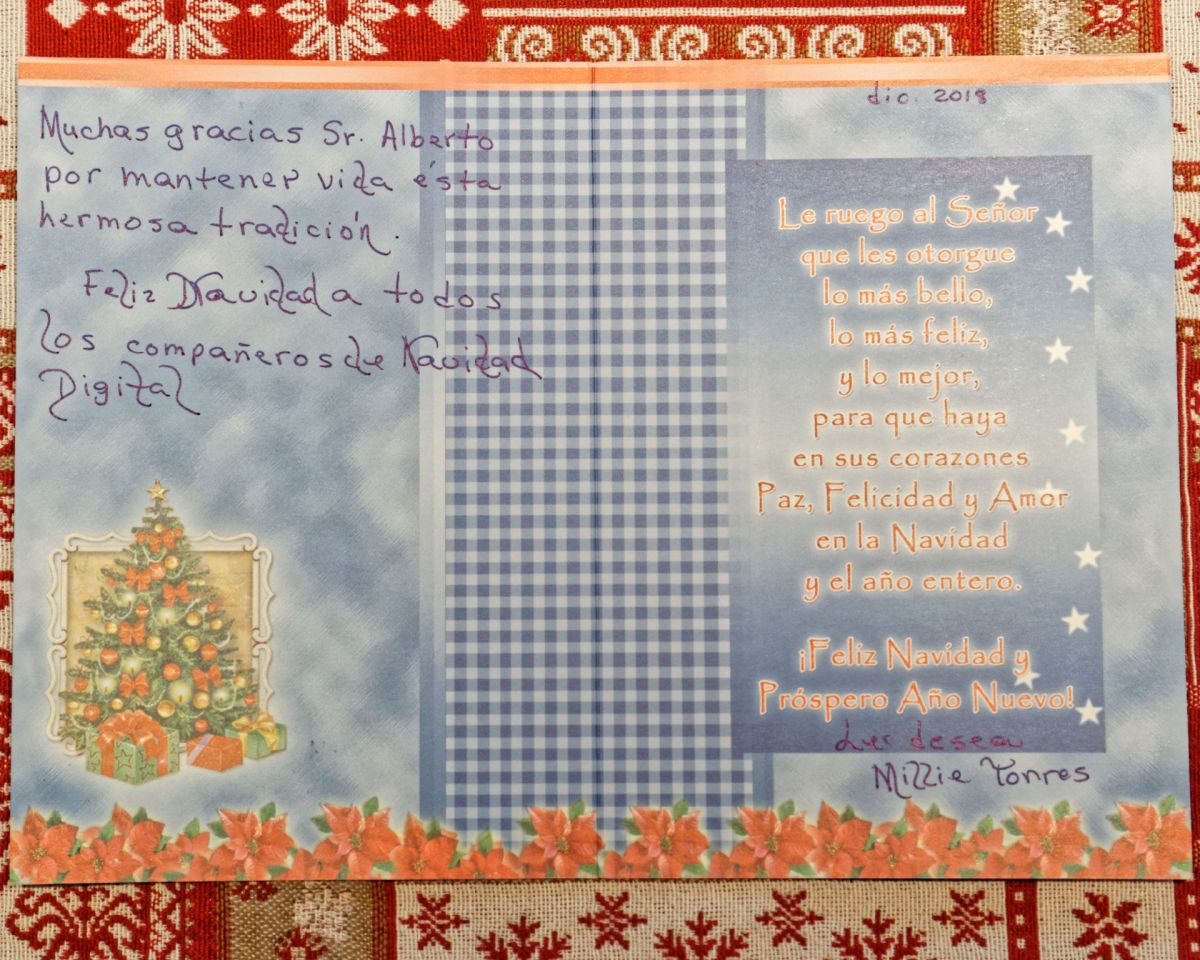 Muchas gracias Sr. Alberto
por mantener vida ésta
hermosa tradición.
Feliz Navidad a todos
los compañeros de Navidad
Digital
dic. 2018
Le ruego al Señor
que les otorgue
lo más bello,
lo más feliz,
y lo mejor,
para que haya
en sus corazones
Paz, Felicidad y Amor
en la Navidad
y el año entero.
¡Feliz Navidad y
Próspero Año Nuevo!
Les desea
Millie Torres